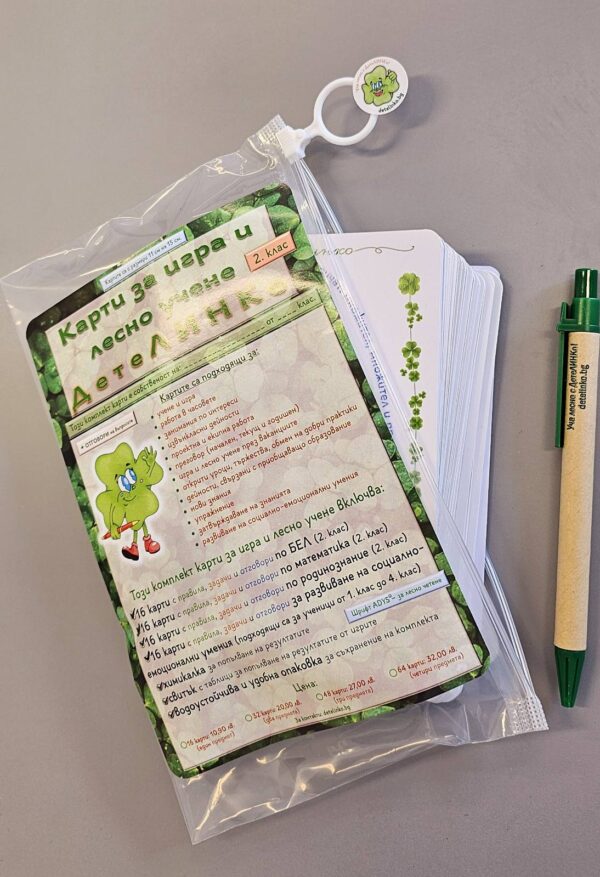 Учи лесно с ДетеЛИНКо!
detelinko.bg
Картите са с размери 11 см на 15 см.
Карти за игра и
лесно учене
2. клас
ДетеЛИНКо
Този комплект карти е собственост на: от клас.
+ ОТГОВОРИ на въпросите
Картите са подходящи за:
учене и игра
работа в часовете
занимания по интереси
извънкласни дейности
проектна и екипна работа
преговор (начален, текущ и годишен)
игра и лесно учене през ваканциите
открити уроци, тържества, обмен на добри практики
дейности, свързани с приобщаващо образование
нови знания
упражнение
затвърждаване на знанията
развиване на социално-емоционални умения
Този комплект карти за игра и лесно учене включва:
16 карти с правила, задачи и отговори по БЕЛ (2. клас)
16 карти с правила, задачи и отговори по математика (2. клас)
16 карти с правила, задачи и отговори по родинознание (2. клас)
16 карти с правила, задачи и отговори за развиване на социално-
емоционални умения (подходящи са за ученици от 1. клас до 4. клас)
химикалка за попълване на резултатите
Шрифт ADYS®- за лесно четене
свитък с таблици за попълване на резултатите от игрите
водоустойчива и удобна опаковка за съхранение на комплекта
Цена:
16 карти: 10,90 лв.
(един предмет)
32 карти: 20,90 лв.
(два предмета)
48 карти: 27,00 лв.
(три предмета)
64 карти: 32,00 лв.
(четири предмета)
За контакти: detelinko.bg
множител и
Учи лесно с ДетеЛИНКо!
detelinko.bg